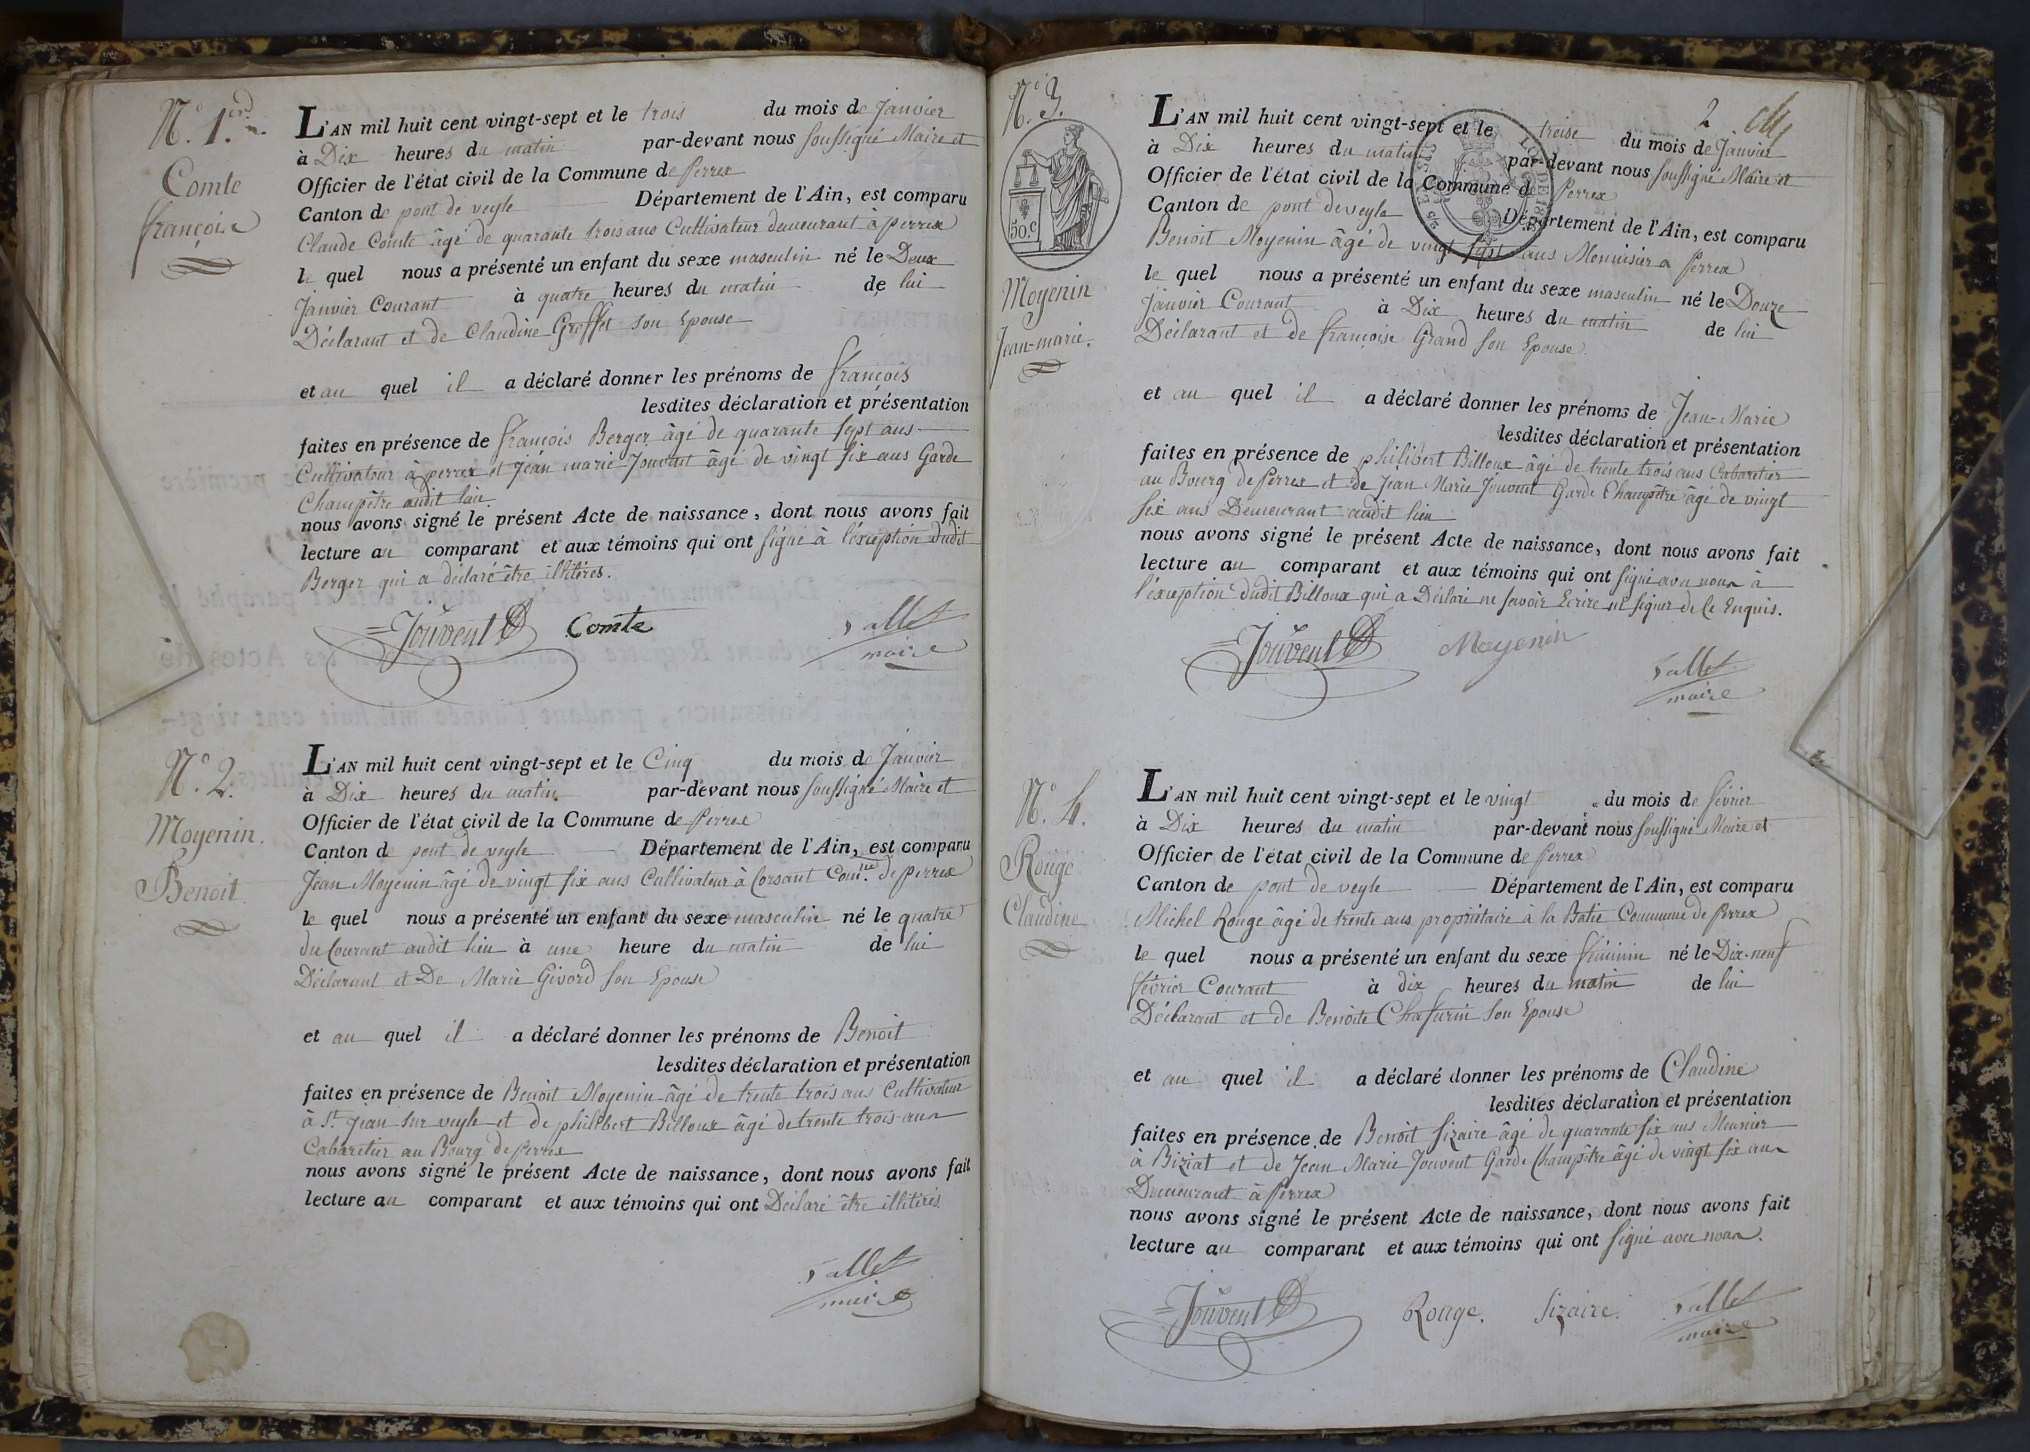 N.° 1.er
Comte
françois
L'AN mil huit cent vingt-sept et le trois du mois de Janvier
à Dix heures du matin par-devant nous soussigné Maire et
Officier de l'état civil de la Commune de Perrex
Canton de pont de veyle Département de l'Ain, est comparu
Claude Comte âgé de quarante trois ans Cultivateur demeurant à perrex
le quel nous a présenté un enfant du sexe masculin né le Deux
Janvier Courant à quatre heures du matin de lui
Déclarant et de Claudine Greffet son Epouse
et au quel il a déclaré donner les prénoms de françois
lesdites déclaration et présentation
faites en présence de françois Berger âgé de quarante sept ans
Cultivateur à perrex et Jean marie Jouvent âgé de vingt six ans Garde
Champêtre audit lieu
nous avons signé le présent Acte de naissance, dont nous avons fait
lecture au comparant et aux témoins qui ont signé à l'éxeption dudit
Berger qui a déclaré être illitéres.
Jouvent Comte Vallet
maire
N.° 2.
Moyenin.
Benoit.
L'AN mil huit cent vingt-sept et le Cinq du mois de Janvier
à Dix heures du matin par-devant nous soussigné Maire et
Officier de l'état civil de la Commune de Perrex
Canton de pont de veyle Département de l'Ain, est comparu
Jean Moyenin âgé de vingt six ans Cultivateur à Corsant Com.ne de perrex
le quel nous a présenté un enfant du sexe masculin né le quatre
du Courant audit lieu à une heure du matin de lui
Déclarant et De Marie Givord son Epouse
et au quel il a déclaré donner les prénoms de Benoit
lesdites déclaration et présentation
faites en présence de Benoit Moyenin âgé de trente trois ans Cultivateur
à St. Jean sur veyle et de philibert Billoux âgé de trente trois ans
Cabaretier au Bourg de Perrex
nous avons signé le présent Acte de naissance, dont nous avons fait
lecture au comparant et aux témoins qui ont Déclaré être illitérés
Vallet
maire
2
N.° 3.
50.c
Moyenin
Jean-marie.
L'AN mil huit cent vingt-sept et le treise du mois de Janvier
à Dix heures du matin par-devant nous soussigné Maire et
Officier de l'état civil de la Commune de Perrex
Canton de pont de veyle Département de l'Ain, est comparu
Benoit Moyenin âgé de vingt sept ans Menuisier a Perrex
le quel nous a présenté un enfant du sexe masculin né le Douze
Janvier Courant à Dix heures du matin de lui
Déclarant et de françoise Grand son Epouse.
et au quel il a déclaré donner les prénoms de Jean-Marie
lesdites déclaration et présentation
faites en présence de philibert Billoux âgé de trente trois ans Cabaretier
au Bourg de Perrex et de Jean Marie Jouvent Garde Champêtre âgé de vingt
six ans Demeurant audit lieu
nous avons signé le présent Acte de naissance, dont nous avons fait
lecture au comparant et aux témoins qui ont signé avec nous à
l'éxeption dudit Billoux qui a Déclaré ne savoir Ecrire ni signer de Ce Enquis.
Jouvent Moyenin Vallet
maire
N.° 4.
Rouge
Claudine
L'AN mil huit cent vingt-sept et le vingt du mois de février
à Dix heures du matin par-devant nous soussigné Maire et
Officier de l'état civil de la Commune de Perrex
Canton de pont de veyle Département de l'Ain, est comparu
Michel Rouge âgé de trente ans propriétaire à la Batie Commune de Perrex
le quel nous a présenté un enfant du sexe féminin né le Dix-neuf
février Courant à dix heures du matin de lui
Déclarant et de Benoite Chafurin son Epouse
et au quel il a déclaré donner les prénoms de Claudine
lesdites déclaration et présentation
faites en présence de Benoit Sizaire âgé de quarante six ans Meunier
à Biziat et de Jean Marie Jouvent Garde Champêtre âgé de vingt six ans
Demeurant à Perrex
nous avons signé le présent Acte de naissance, dont nous avons fait
lecture au comparant et aux témoins qui ont signé avec nous.
Jouvent Rouge. Sizaire. Vallet
maire